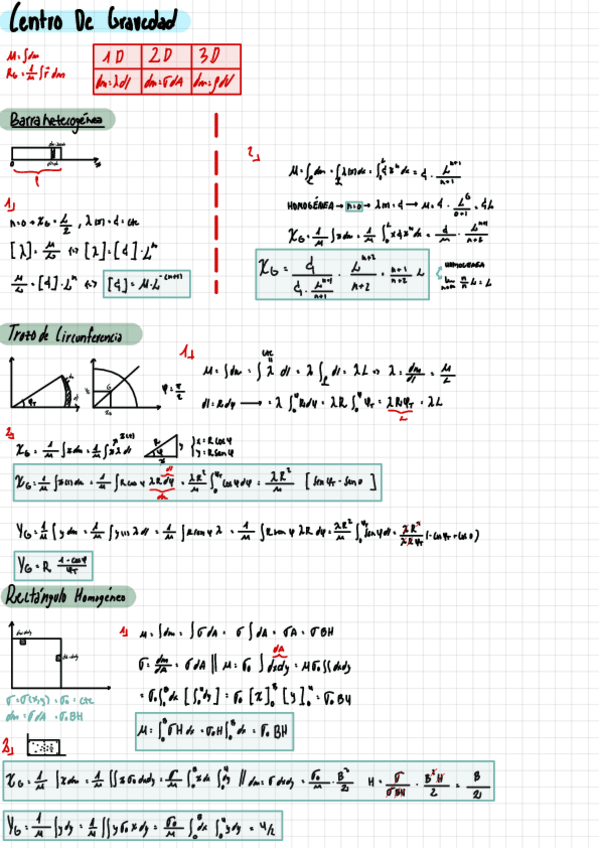 Centro De Gravedad
M = ∫dm
R_G = 1/M ∫ r⃗ dm
1D 2D 3D
dm = λdl dm = σdA dm = ρdV
Barra heterogénea
1)
n=0 → X_G = L/2 , λ(x) = d = cte
[λ] = M/L ↔ [λ] = [d]·Lⁿ
M/L = [d]·Lⁿ ↔ [d] = M·L^-(n+1)
2)
M = ∫dm = ∫λ(x)dx = ∫₀ᴸ d xⁿ dx = d · L^(n+1)/(n+1)
HOMOGÉNEA → n=0 → λ(x) = d → M = d ·
X_G = 1/M ∫xdm = 1/M ∫₀ᴸ x d xⁿ dx = d/M · L^(n+2)/(n+2)
X_G = d/(d · L^(n+1)/(n+1)) · L^(n+2)/(n+2) = (n+1)/(n+2) L
HOMOGENEA
Trozo de Circunferencia
φ = π/2
1)
M = ∫dm = ∫ λ dl = λ ∫ dl = λL ⇒ λ = dm/dl = M/L
cte
dl = Rdφ → = λ ∫ Rdφ = λR ∫ = λRφ_T = λL
L
2)
X_G = 1/M ∫xdm = 1/M ∫xλdl
x = R cos φ
y = R sen φ
X_G = 1/M ∫x(φ)dm = 1/M ∫R cos φ λR dφ = λR²/M ∫ cos φ dφ = λR²/M [sen φ_T - sen 0]
dl
dm
Y_G = 1/M ∫y dm = 1/M ∫y(φ) λ dl = 1/M ∫R sen φ λ = 1/M ∫R sen φ λR dφ = λR²/M ∫ sen φ dl = λR²/λRφ_T (-cos φ_T + cos 0)
Y_G = R (1 - cos φ)/φ_T
Rectángulo Homogéneo
1)
M = ∫dm = ∫σdA = σ∫dA = σA = σBH
dA
σ = dm/dA = σdA || M = σ₀ ∫dxdy = Mσ₀∫∫dxdy
σ = σ(x,y) = σ₀ = cte
dm = σdA = σ₀BH
= σ₀∫₀ᴮdx [∫₀ᴴdy] = σ₀ [x]₀ᴮ [y]₀ᴴ = σ₀BH
M = ∫₀ᴮ σH dx = σ₀H∫₀ᴮdx = σ₀BH
2)
X_G = 1/M ∫xdm = 1/M ∫∫xσ₀dxdy = σ/M ∫₀ᴮxdx ∫₀ᴴdy || dm = σdxdy = σ₀/M · B²/2 H = σ/σBH · B²H/2 = B/2
Y_G = 1/M ∫ydy = 1/M ∫∫yσ₀xdy = σ₀/M ∫₀ᴮdx ∫₀ᴴydy = H/2